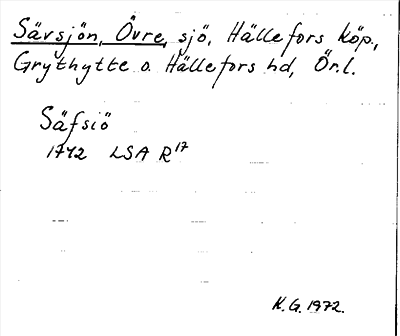 Sävsjön, Övre, sjö, Hällefors köp.,
Grythytte o. Hällefors hd, Ör.l.
Säfsiö
1742 LSA R 17
K.G. 1972.